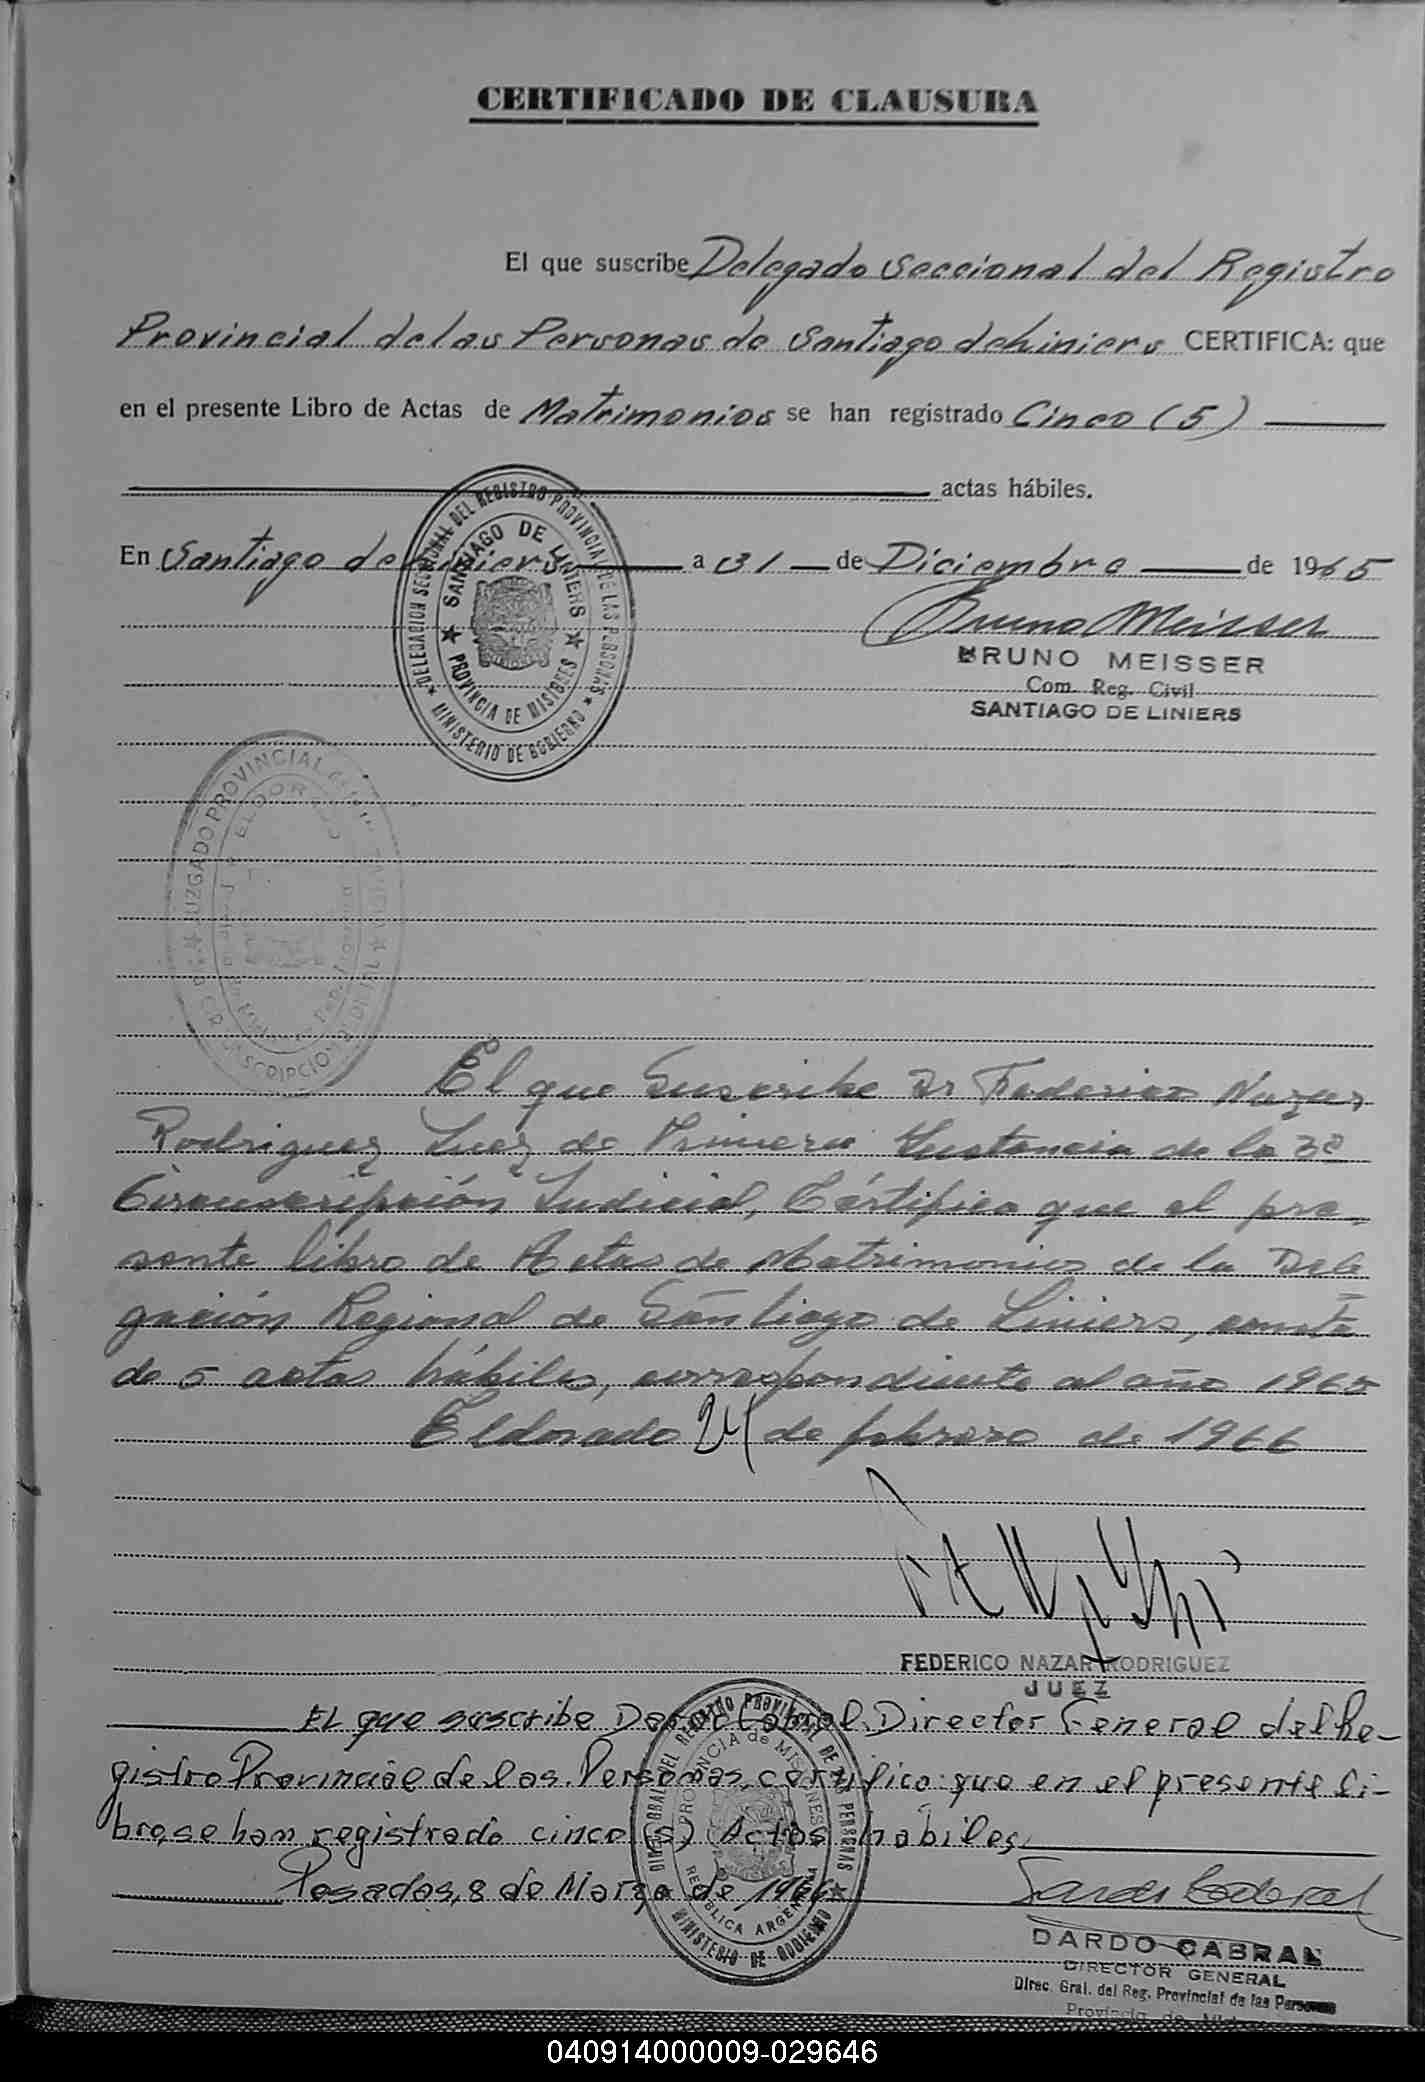 CERTIFICADO DE CLAUSURA
El que suscribe Delegado Seccional del Registro
Provincial de las Personas de Santiago de Liniers CERTIFICA: que
en el presente Libro de Actas de Matrimonios se han registrado Cinco (5)
actas hábiles.
En Santiago de Liniers a 31 de Diciembre de 1965
Bruno Meisser
BRUNO MEISSER
Com. Reg. Civil
SANTIAGO DE LINIERS
DELEGACION SECCIONAL DEL REGISTRO PROVINCIAL DE LAS PERSONAS
MINISTERIO DE GOBIERNO
SANTIAGO DE LINIERS
PROVINCIA DE MISIONES
JUZGADO PROVINCIAL
ELDORADO
CIRCUNSCRIPCION
El que suscribe Dr Federico Nazar
Rodriguez Juez de Primera Instancia de la 3ª
Circunscripción Judicial, Cértifica que el pre-
sente libro de Actas de Matrimonios de la Dele
gación Regional de Santiago de Liniers, consta
de 5 actas hábiles, correspondiente al año 1965
Eldorado 24 de febrero de 1966
FEDERICO NAZAR RODRIGUEZ
JUEZ
El que suscribe Dardo Cabral, Director General del Re-
gistro Provincial de las Personas, certifico: que en el presente li-
bro, se han registrado cinco (5) Actas habiles,
Posadas, 8 de Marzo de 1966
DIREC. GRAL. DEL REGISTRO PROVINCIAL DE PERSONAS
MINISTERIO DE GOBIERNO
PROVINCIA de MISIONES
REPUBLICA ARGENTINA
DARDO CABRAL
DIRECTOR GENERAL
Direc. Gral. del Reg. Provincial de las Personas
Provincia de
040914000009-029646